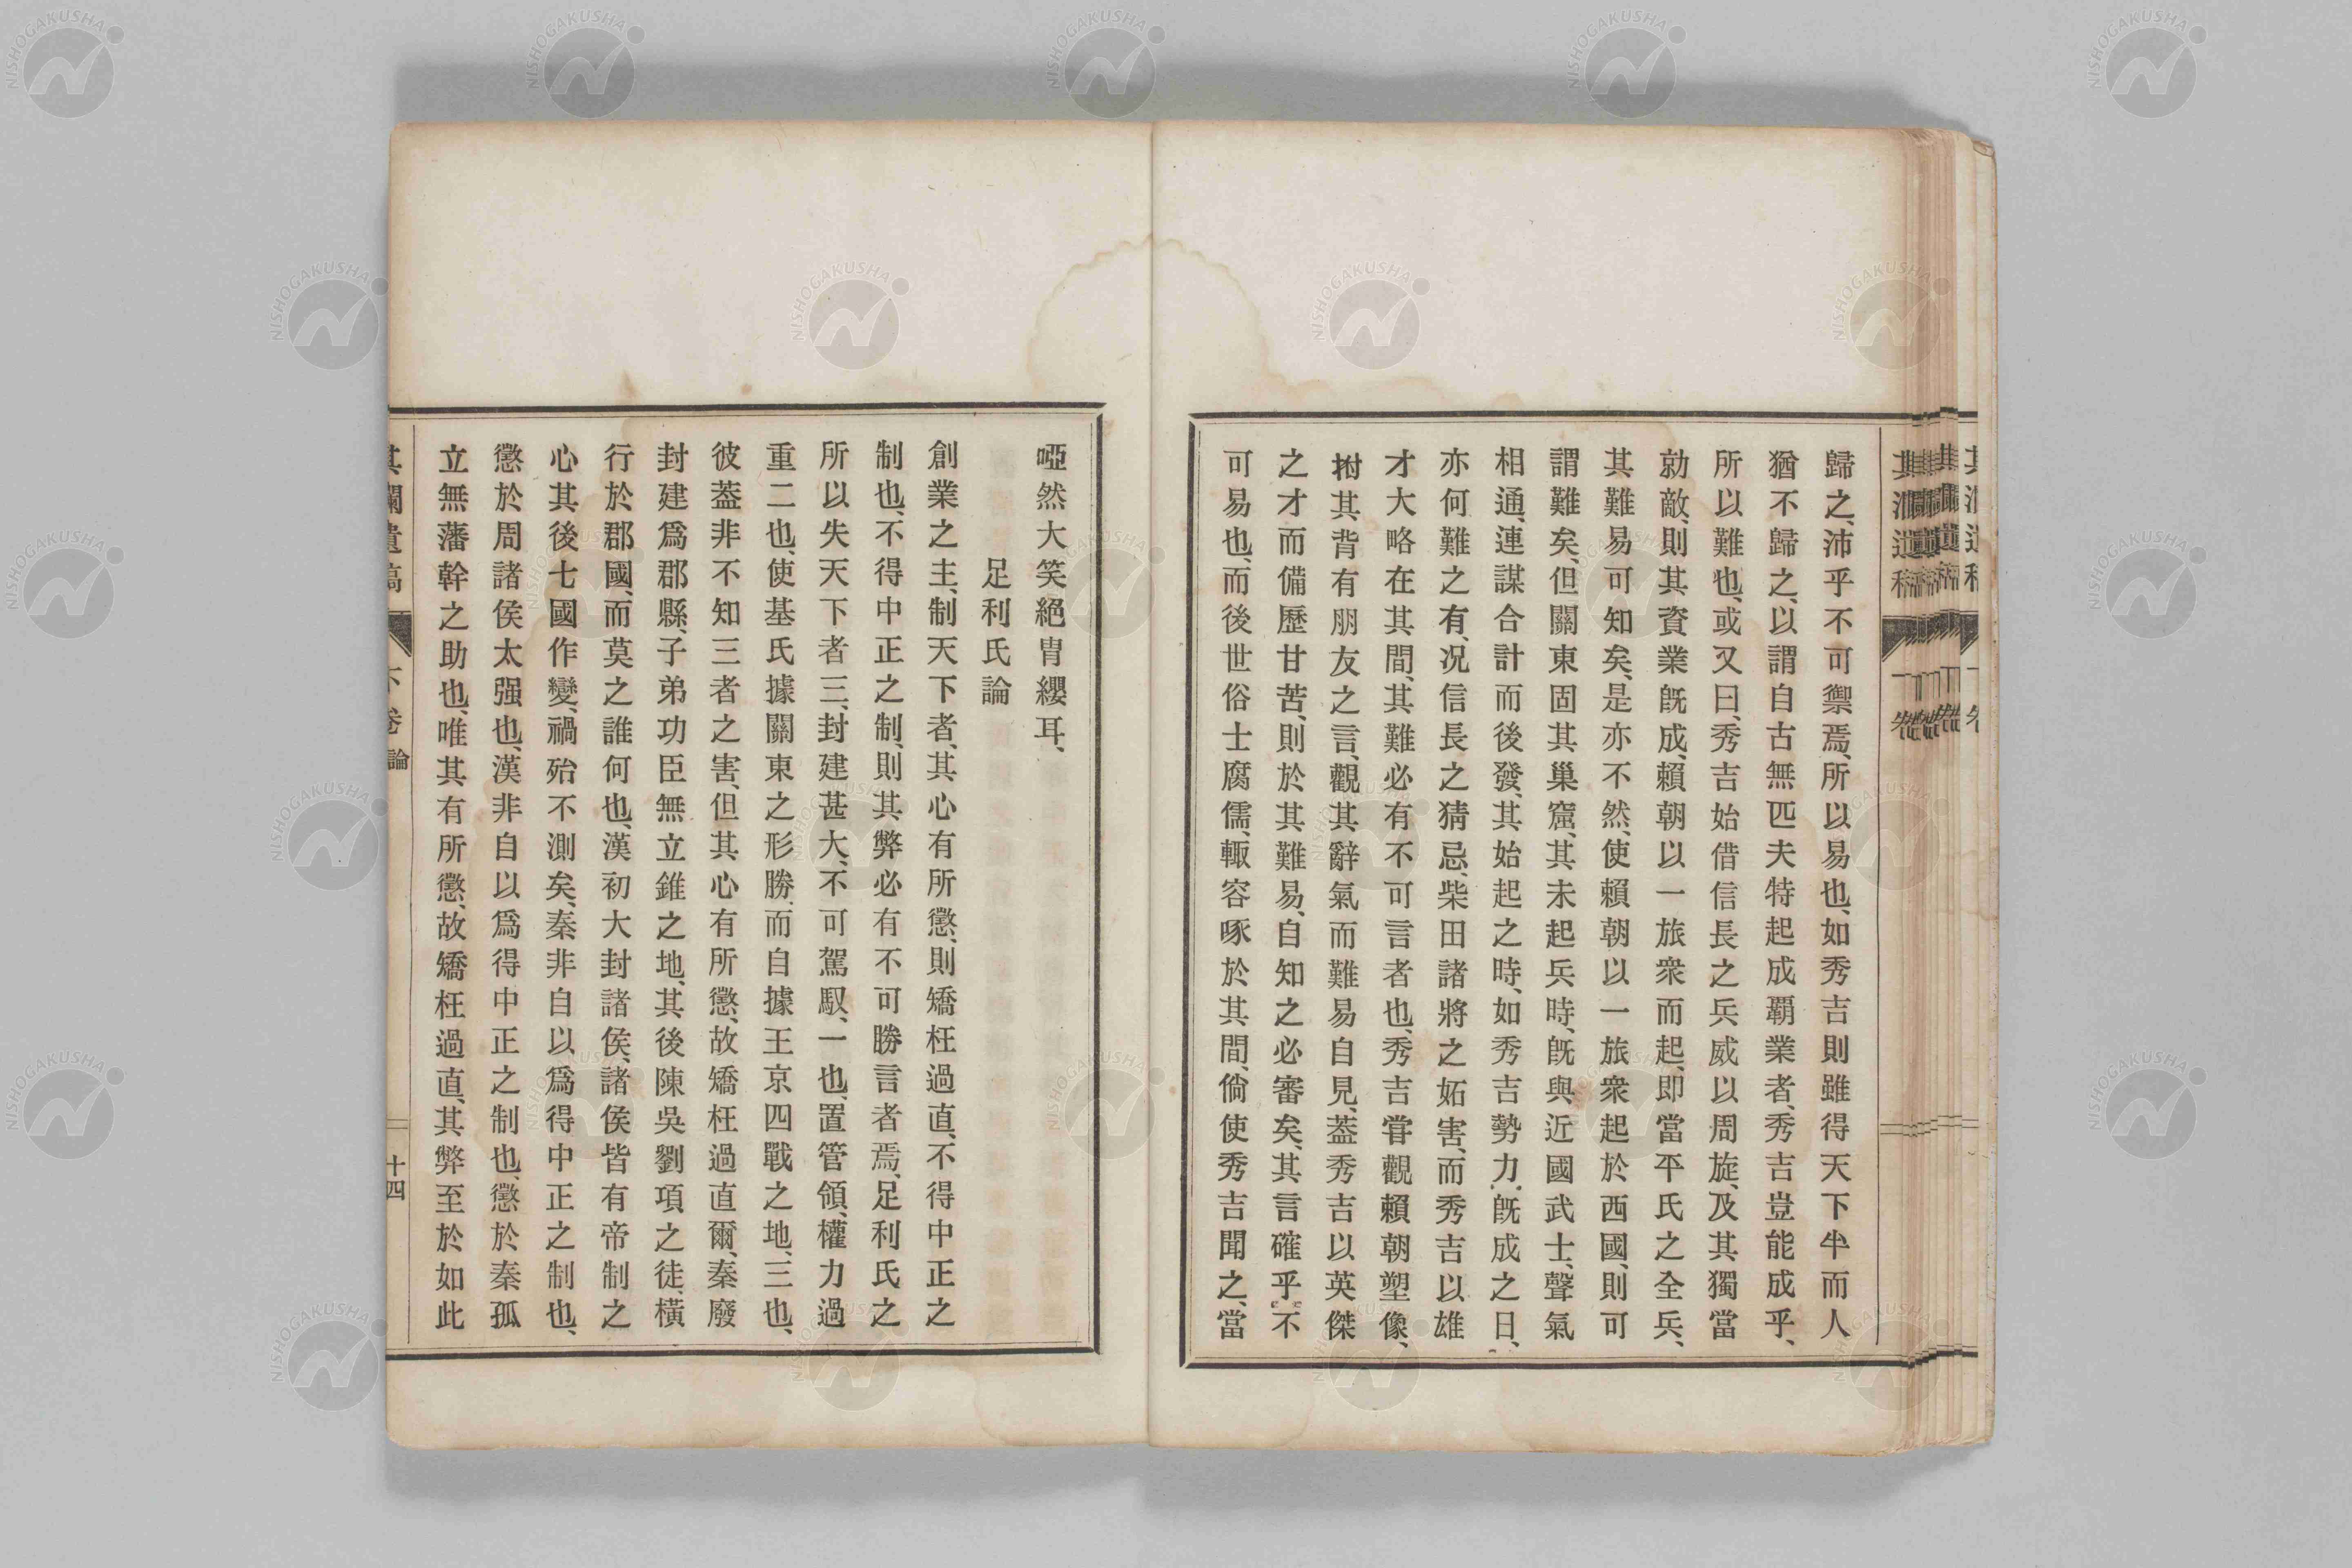 歸之、沛乎不可禦焉、所以易也、如秀吉則雖得天下半而人
猶不歸之、以謂自古無匹夫特起成覇業者、秀吉豈能成乎、
所以難也、或又曰、秀吉始借信長之兵威以周旋、及其獨當
勍敵、則其資業既成、賴朝以一旅衆而起、即當平氏之全兵、
其難易可知矣、是亦不然、使賴朝以一旅衆起於西國、則可
謂難矣、但關東固其巢窟、其未起兵時、既與近國武士、聲氣
相通、連謀合計而後發、其始起之時、如秀吉勢力、既成之日、
亦何難之有、况信長之猜忌、柴田諸將之妬害、而秀吉以雄
才大略在其間、其難必有不可言者也、秀吉甞觀賴朝塑像、
拊其背有朋友之言、觀其辭氣而難易自見、葢秀吉以英傑
之才而備歷甘苦、則於其難易、自知之必審矣、其言確乎不
可易也、而後世俗士腐儒、輙容啄於其間、倘使秀吉聞之、當
啞然大笑絕冑纓耳、
足利氏論
創業之主、制天下者、其心有所懲、則矯枉過直、不得中正之
制也、不得中正之制、則其弊必有不可勝言者焉、足利氏之
所以失天下者三、封建甚大、不可駕馭、一也、置管領、權力過
重二也、使基氏據關東之形勝、而自據王京四戰之地、三也、
彼葢非不知三者之害、但其心有所懲、故矯枉過直爾、秦廢
封建爲郡縣、子弟功臣無立錐之地、其後陳吳劉項之徒、橫
行於郡國、而莫之誰何也、漢初大封諸侯、諸侯皆有帝制之
心其後七國作變、禍殆不測矣、秦非自以爲得中正之制也、
懲於周諸侯太强也、漢非自以爲得中正之制也、懲於秦孤
立無藩幹之助也、唯其有所懲、故矯枉過直、其弊至於如此
下卷 論
十四